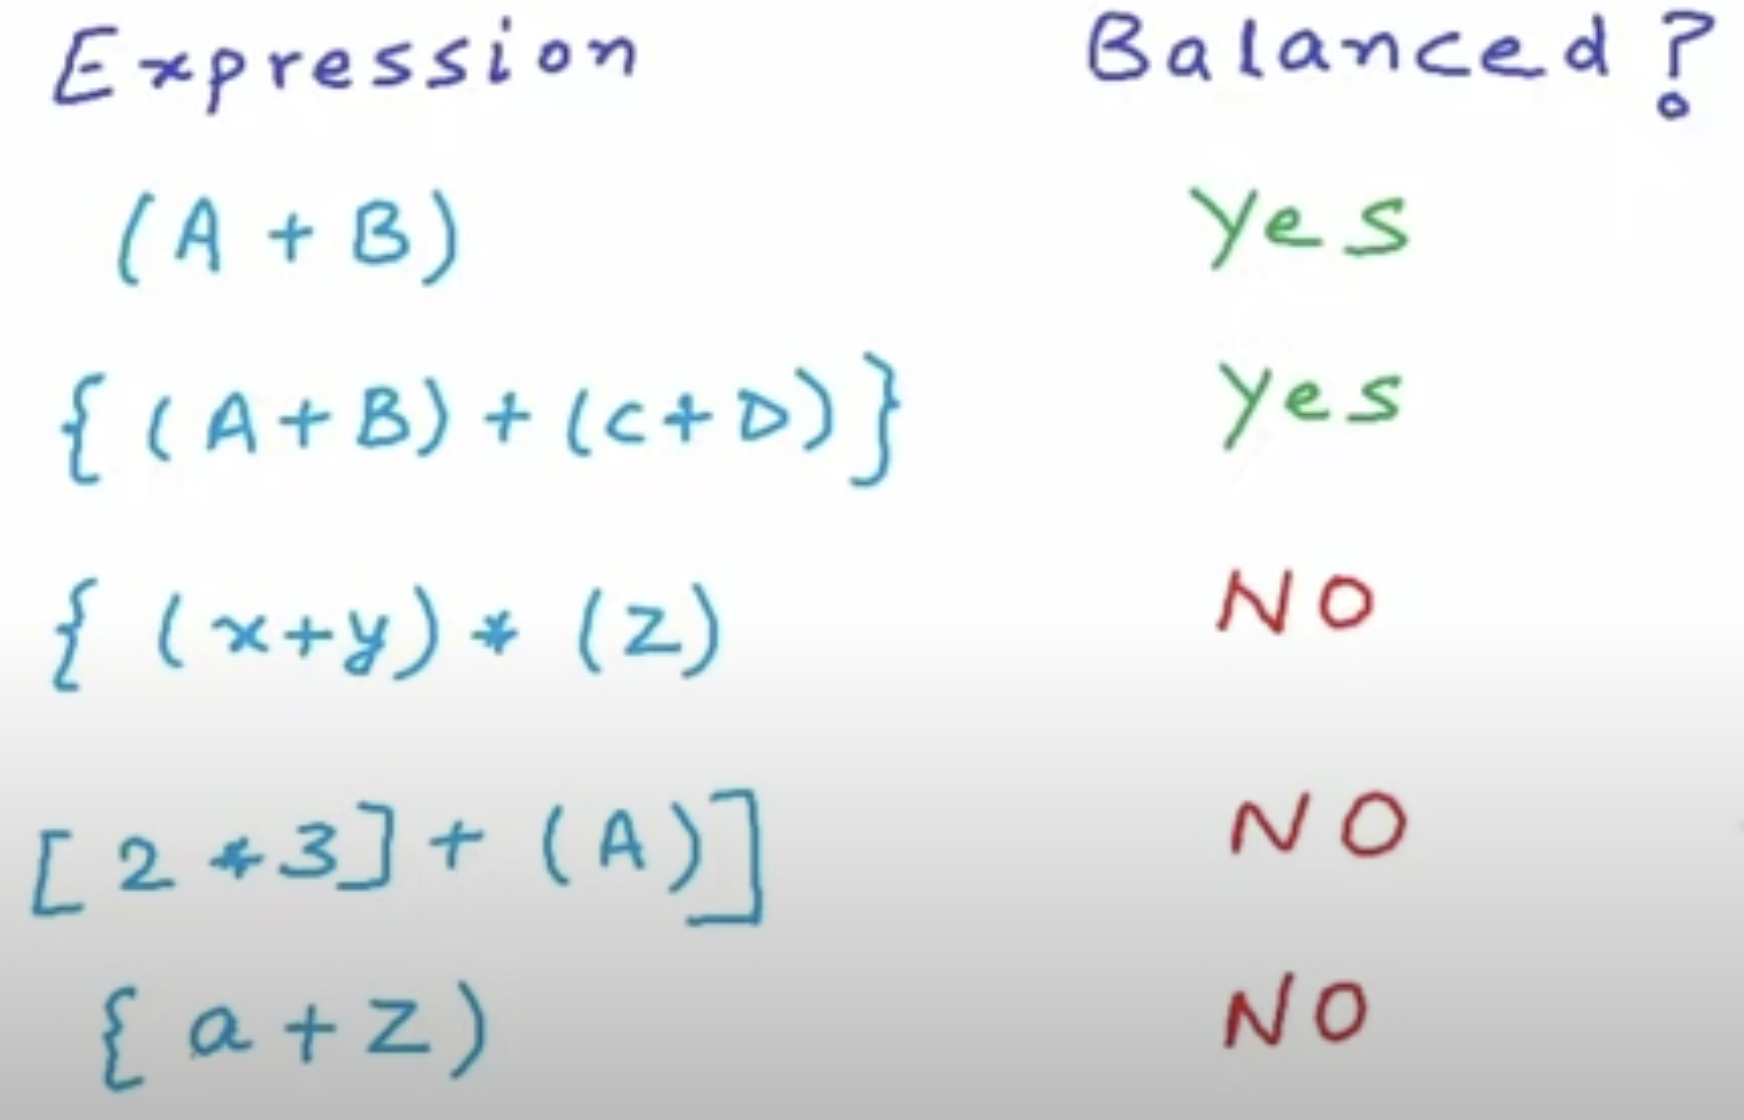 Expression Balanced?
(A + B) Yes
{(A+B) + (C+D)} Yes
{ (x+y) * (z) NO
[2 * 3] + (A)] NO
{ a + z ) NO